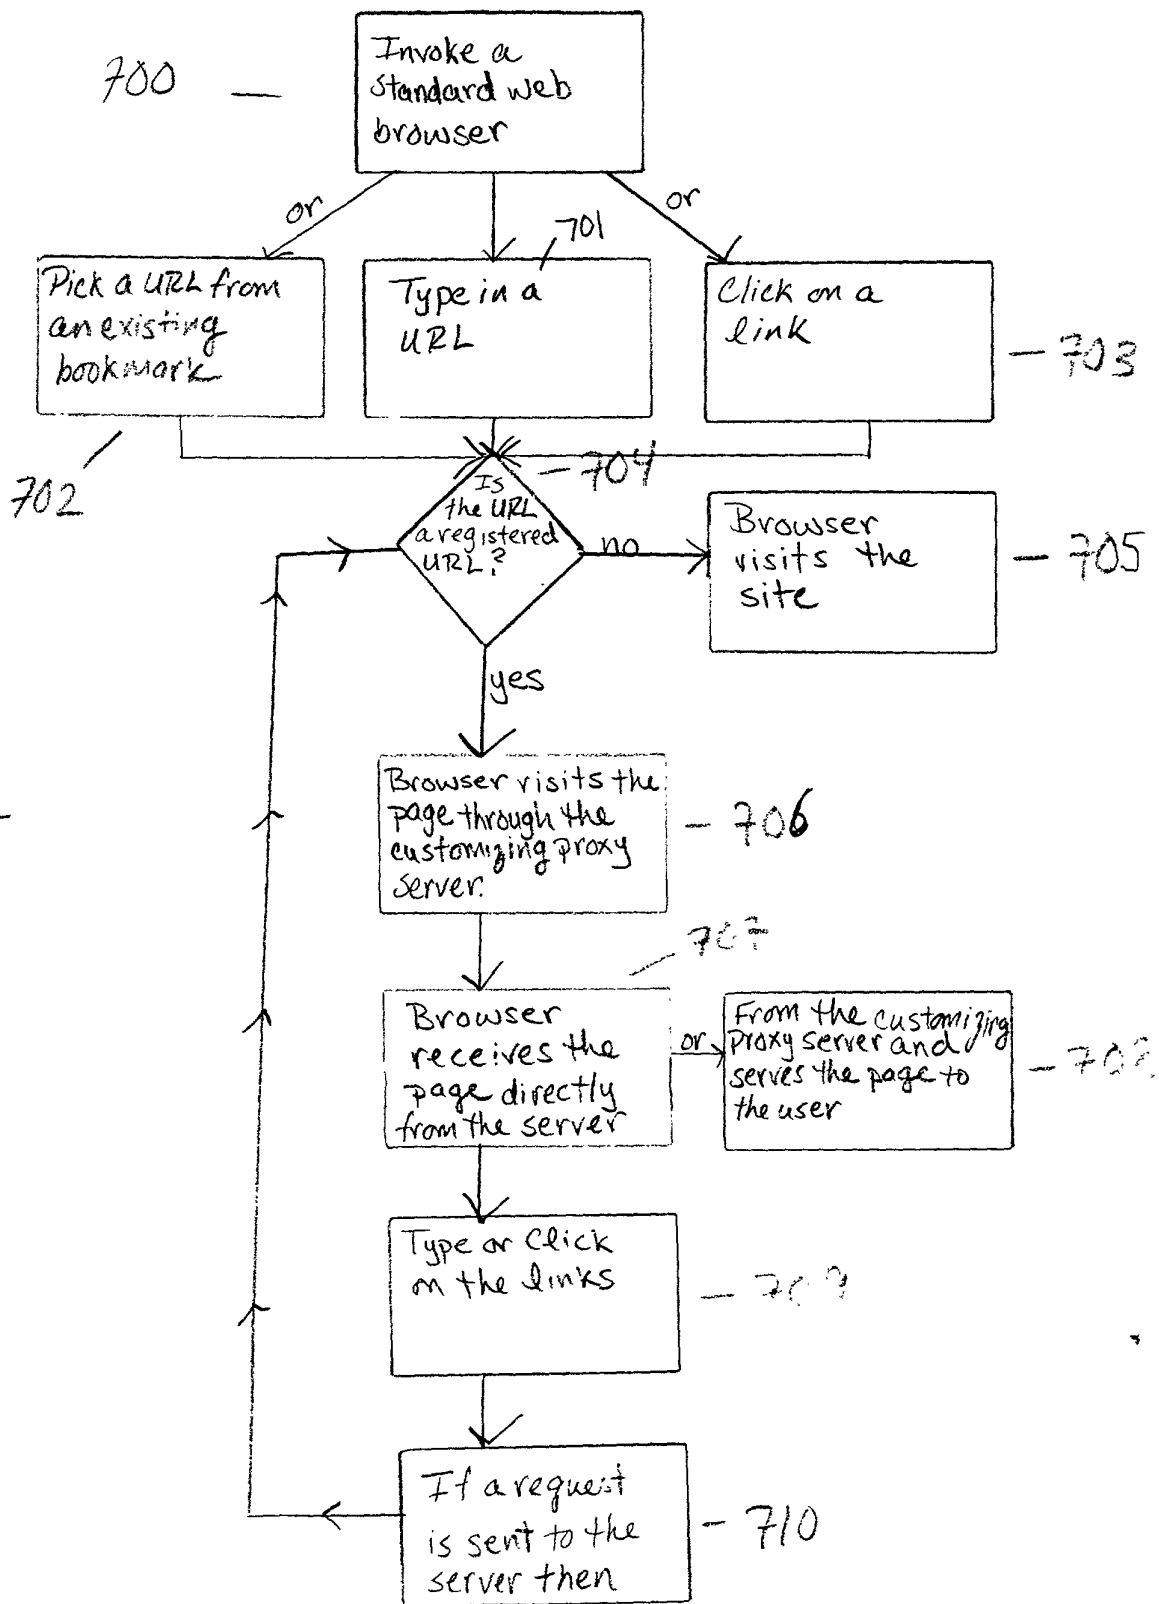 700 —
Invoke a
standard web
browser
or
or
701
Pick a URL from
an existing
bookmark
Type in a
URL
Click on a
link
— 703
702
— 704
Is
the URL
a registered
URL?
no
Browser
visits the
site
— 705
yes
Browser visits the
page through the
customizing proxy
server.
— 706
707
Browser
receives the
page directly
from the server
or
From the customizing
proxy server and
serves the page to
the user
— 708
Type or Click
on the links
— 709
If a request
is sent to the
server then
— 710